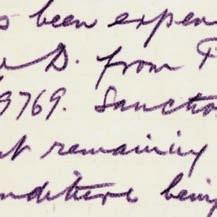 s been expen
D. from
3769. Sanction
remaining
nditure being